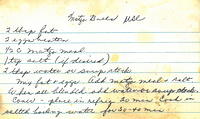 Matzo Balls
2 tbsp fat
2 eggs beaten
1/2 c matzo meal
1 tsp salt (if desired)
2 tbsp water or soup stock
Mix fat & eggs. Add matzo meal & salt
When all blended add water or soup stock.
Cover - place in refrig 20 min. Cook in
salted boiling water for 30-40 min.